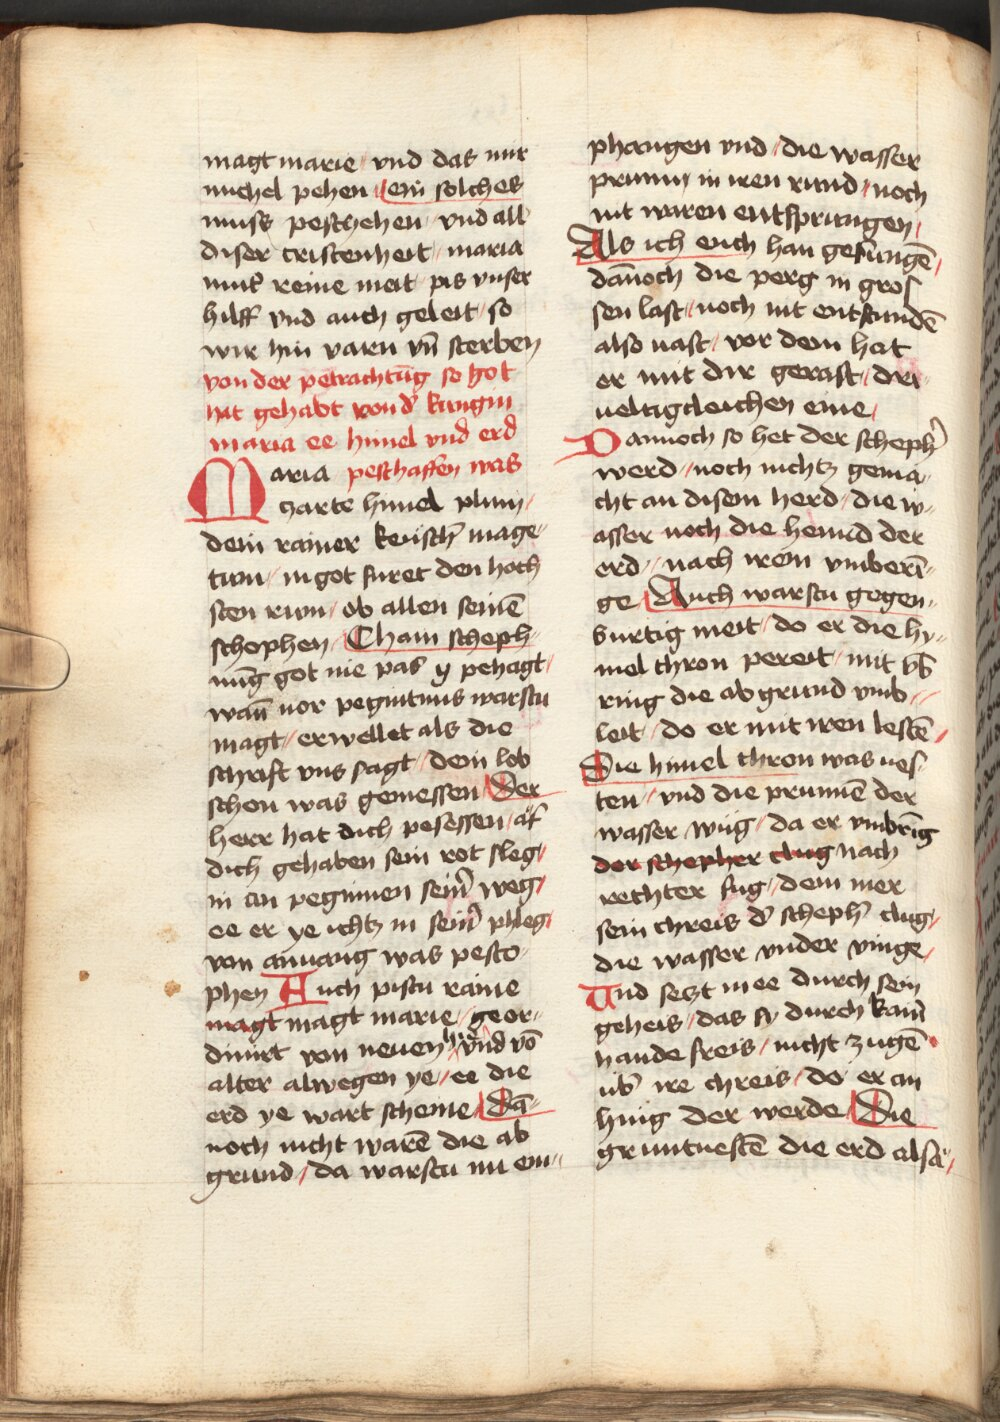 magt marie / vnd das mir
michel pehen / ein solches
muss peschehen / vnd all
diser cristenheit / maria
mut reine meit / pis vnser
hilff vnd auch geleit / so
wir hin varn vn̄ sterben
von der petrachtūg so got
hat gehabt von d' kungin
maria ee himel vnd erd
Maria peschaffen was
zarte himel plum /
dein rainer keusch' mage-
tum / in got furet den hoch
sten rum / ob allen seinē
schephen / Chain scheph-
nūg got nie pas y pehagt /
wan̄ vor pegintnus warstu
magt / erwellet als die
schrift vns sagt / dein lob
schon was gemessen / Der
herr hat dich pesessen /
dich gehaben sein rot sleg /
in an peginnen seim̄ weg /
ee er ye ichtz in sein' phleg /
von anuang was pesto-
phen Auch pistu raine
magt magt marie / geor-
dinirt von neuen hie vnd vō
alter alwegen ye / ee die
erd ye wart scheine / Dā-
noch nicht warē die ab
grund / da warstu in em-
phangen vnd / die wasser
prunn in iren rund / noch
nit waren entsprungen /
Als ich euch han gesungē /
dan̄och die perg in gros
sen last / noch nit entstundē
also uast / vor dem hat
er mit dir gerast / dri-
ueltigcleichen eine /
Dannoch so het der scheph'
werd / noch nichtz gema-
cht an disem herd / die w-
asser noch die hemid der
erd / nach irem vmberī-
ge / Auch warstu gegen-
burtig meit / do er die hy-
mel thron pereit / mit vb
ring die abgrund vmb-
leit / do er mit iren lestē /
Die himel thron was ues-
ten / vnd die prunnē der
wasser wug / da er vmbrīg
der schepher clug nach
rechter fug / dem mer
sein chreis d' scheph' clug /
die wasser vnder vinge /
Und setzt in ee durch sein
geheis / das sy durch kain̄
hande freis / nicht zugē
ub' ire chreis / do er an
hing der werde / Die
gruntuestē die erd alsa /